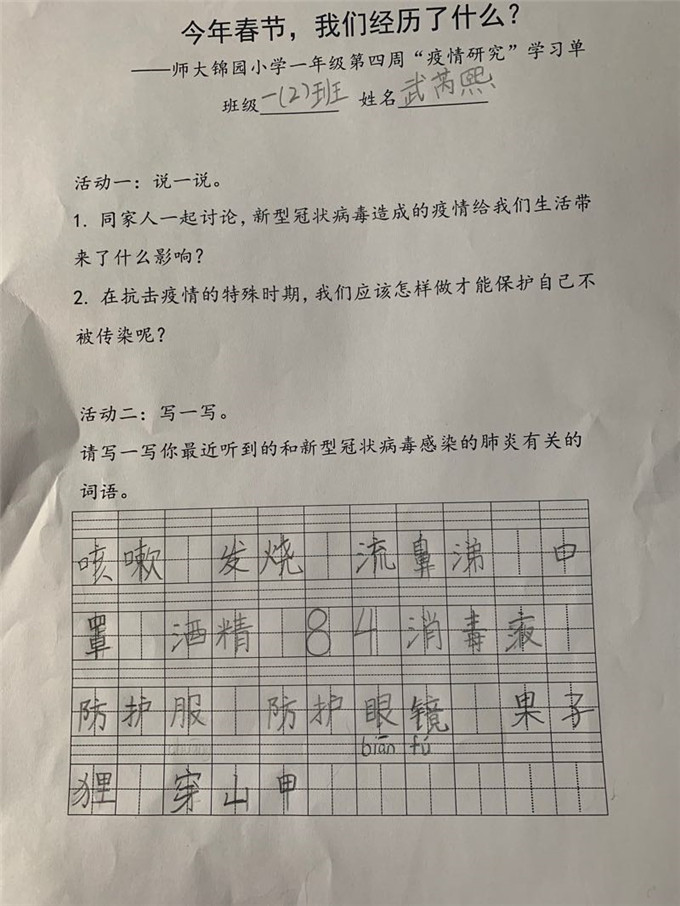 今年春节，我们经历了什么？
——师大锦园小学一年级第四周“疫情研究”学习单
班级一(2)班 姓名武芮熙
活动一：说一说。
1. 同家人一起讨论，新型冠状病毒造成的疫情给我们生活带
来了什么影响？
2. 在抗击疫情的特殊时期，我们应该怎样做才能保护自己不
被传染呢？
活动二：写一写。
请写一写你最近听到的和新型冠状病毒感染的肺炎有关的
词语。
咳嗽 发烧 流鼻涕 口
罩 酒精 84 消毒液
防护服 防护眼镜 果子
biān fú
狸 穿山甲